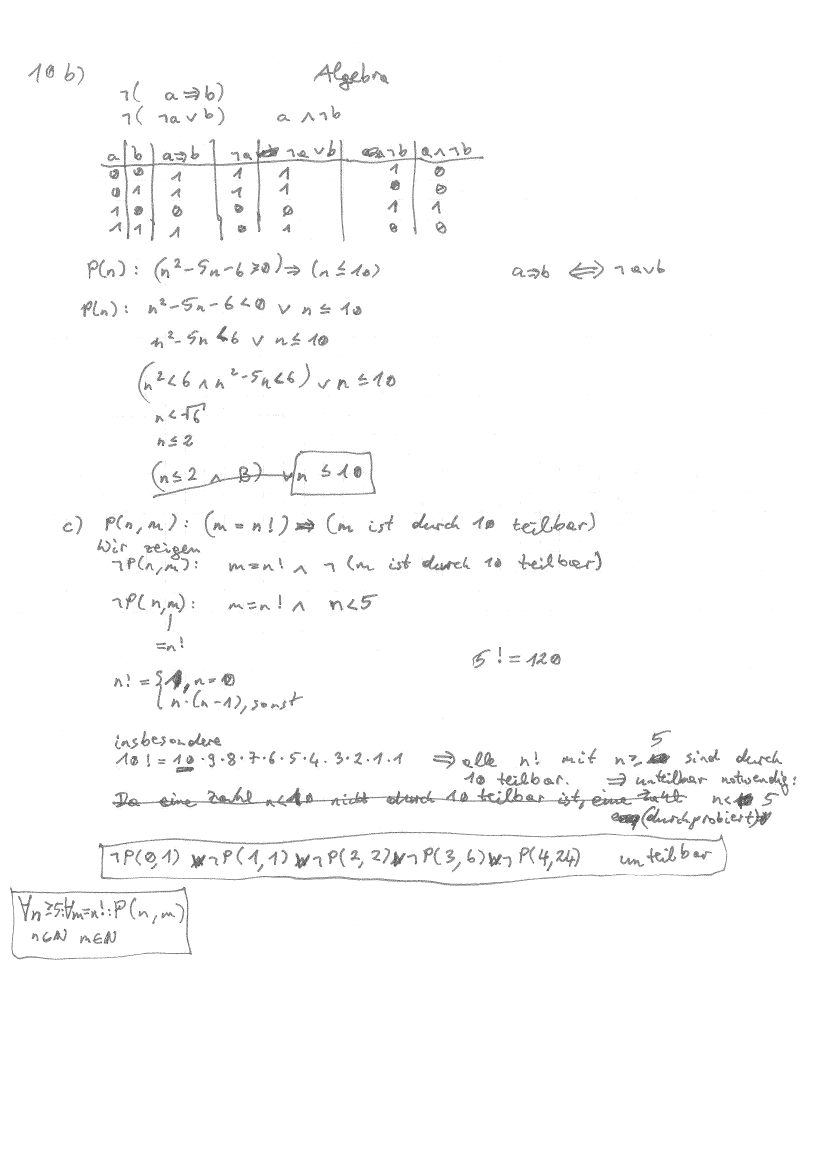 10 b) Algebra
¬( a ⇒ b)
¬( ¬a ∨ b) a ∧ ¬b
a | b | a⇒b | ¬a | ¬a ∨ b | ¬b | a ∧ ¬b
0 | 0 | 1 | 1 | 1 | 1 | 0
0 | 1 | 1 | 1 | 1 | 0 | 0
1 | 0 | 0 | 0 | 0 | 1 | 1
1 | 1 | 1 | 0 | 1 | 0 | 0
P(n) : (n²-5n-6 ≥ 0) ⇒ (n ≤ 10) a⇒b ⇔ ¬a∨b
P(n) : n²-5n-6 < 0 ∨ n ≤ 10
n²-5n < 6 ∨ n ≤ 10
(n² < 6 ∧ n²-5n < 6) ∨ n ≤ 10
n < √6
n ≤ 2
(n ≤ 2 ∧ B) ∨ n ≤ 10
c) P(n, m) : (m = n!) ⇒ (m ist durch 10 teilbar)
Wir zeigen
¬P(n,m) : m = n! ∧ ¬ (m ist durch 10 teilbar)
¬P(n,m) : m = n! ∧ n < 5
= n!
5! = 120
n! = { 1, n = 0
n·(n-1), sonst
insbesondere 5
10! = 10·9·8·7·6·5·4·3·2·1·1 ⇒ alle n! mit n ≥ sind durch
10 teilbar. ⇒ unteilbar notwendig:
Da eine Zahl n<10 nicht durch 10 teilbar ist, eine Zahl n < 5
(durchprobiert)
¬P(0,1) ¬P(1,1) ¬P(2,2) ¬P(3,6) ¬P(4,24) unteilbar
∀n≥5:∀m=n!:P(n,m)
n∈ℕ m∈ℕ